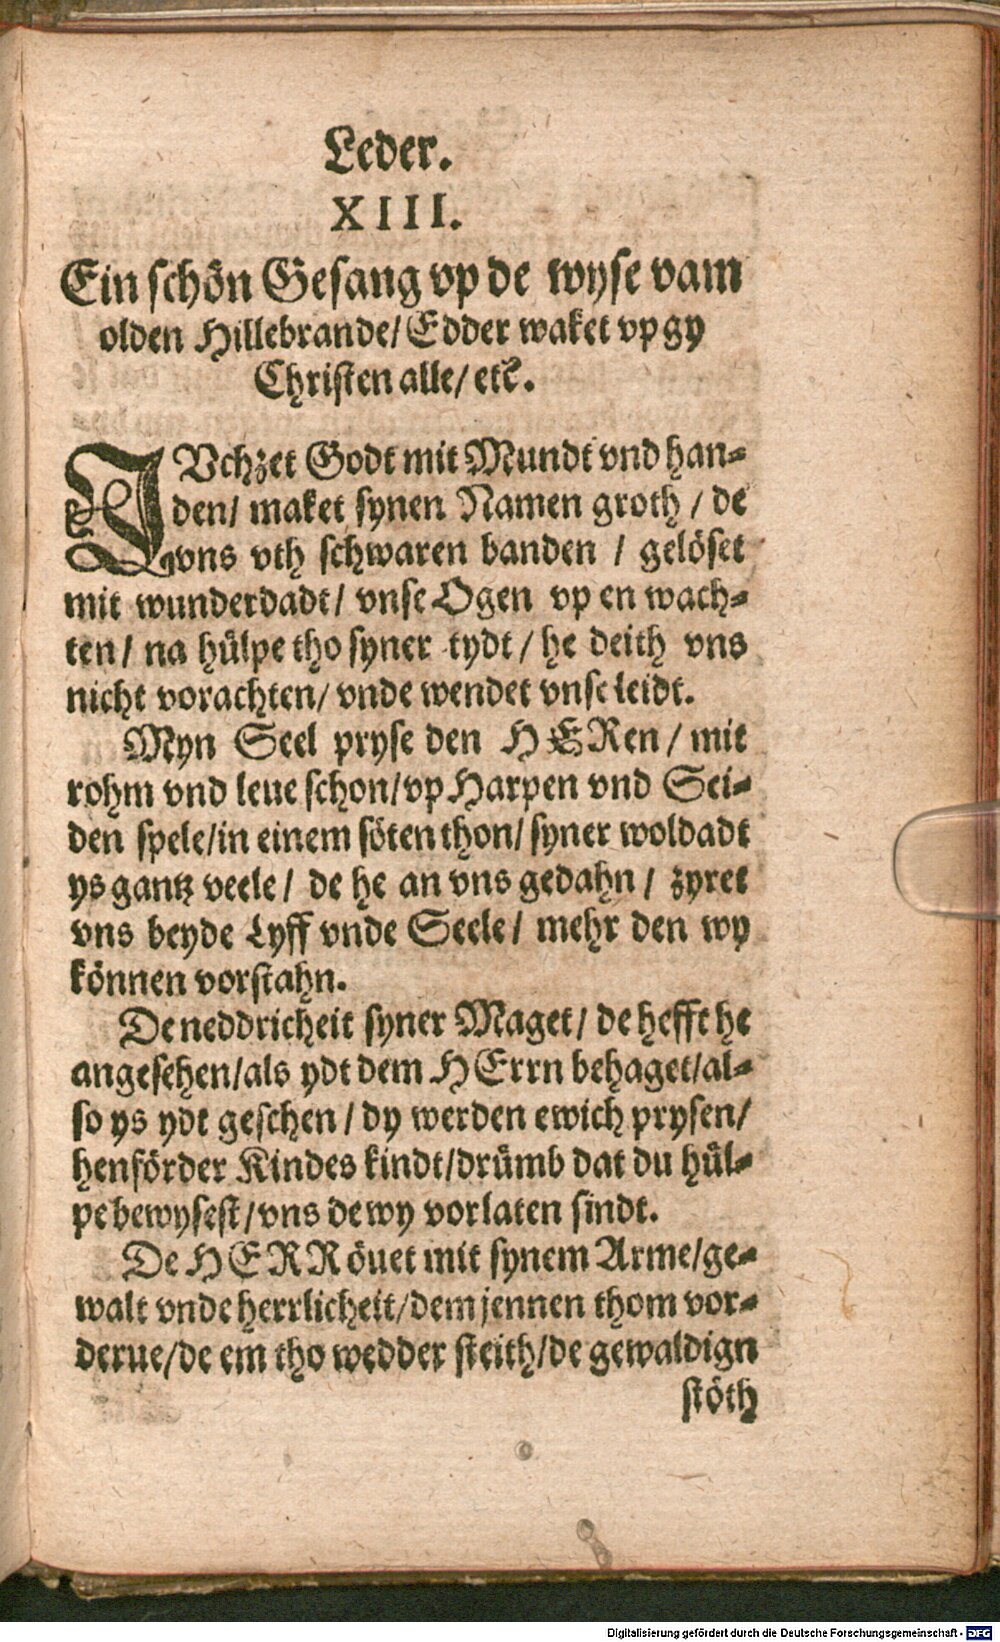 Leder.
XIII.
Ein schön Gesang vp de wyse vam
olden Hillebrande/ Edder waket vp gy
Christen alle/ etc.
JVchzet Godt mit Mundt vnd han-
den/ maket synen Namen groth / de
vns vth schwaren banden / gelöset
mit wunderdadt/ vnse Ogen vp en wach-
ten/ na hülpe tho syner tydt / he deith vns
nicht vorachten/ vnde wendet vnse leidt.
Myn Seel pryse den HERen / mit
rohm vnd leue schon/ vp Harpen vnd Sei-
den spele/ in einem söten thon/ syner woldadt
ys gantz veele / de he an vns gedahn / zyret
vns beyde Lyff vnde Seele / mehr den wy
können vorstahn.
De neddricheit syner Maget/ de hefft he
angesehen/ als ydt dem HErrn behaget/ al-
so ys ydt geschen / dy werden ewich prysen/
henförder Kindes kindt/ drümb dat du hül-
pe bewysest/ vns de wy vorlaten sindt.
De HERR övet mit synem Arme/ ge-
walt vnde herrlicheit/ dem jennen thom vor-
derue/ de em tho wedder steith/ de gewaldign
stöth
Digitalisierung gefördert durch die Deutsche Forschungsgemeinschaft - DFG